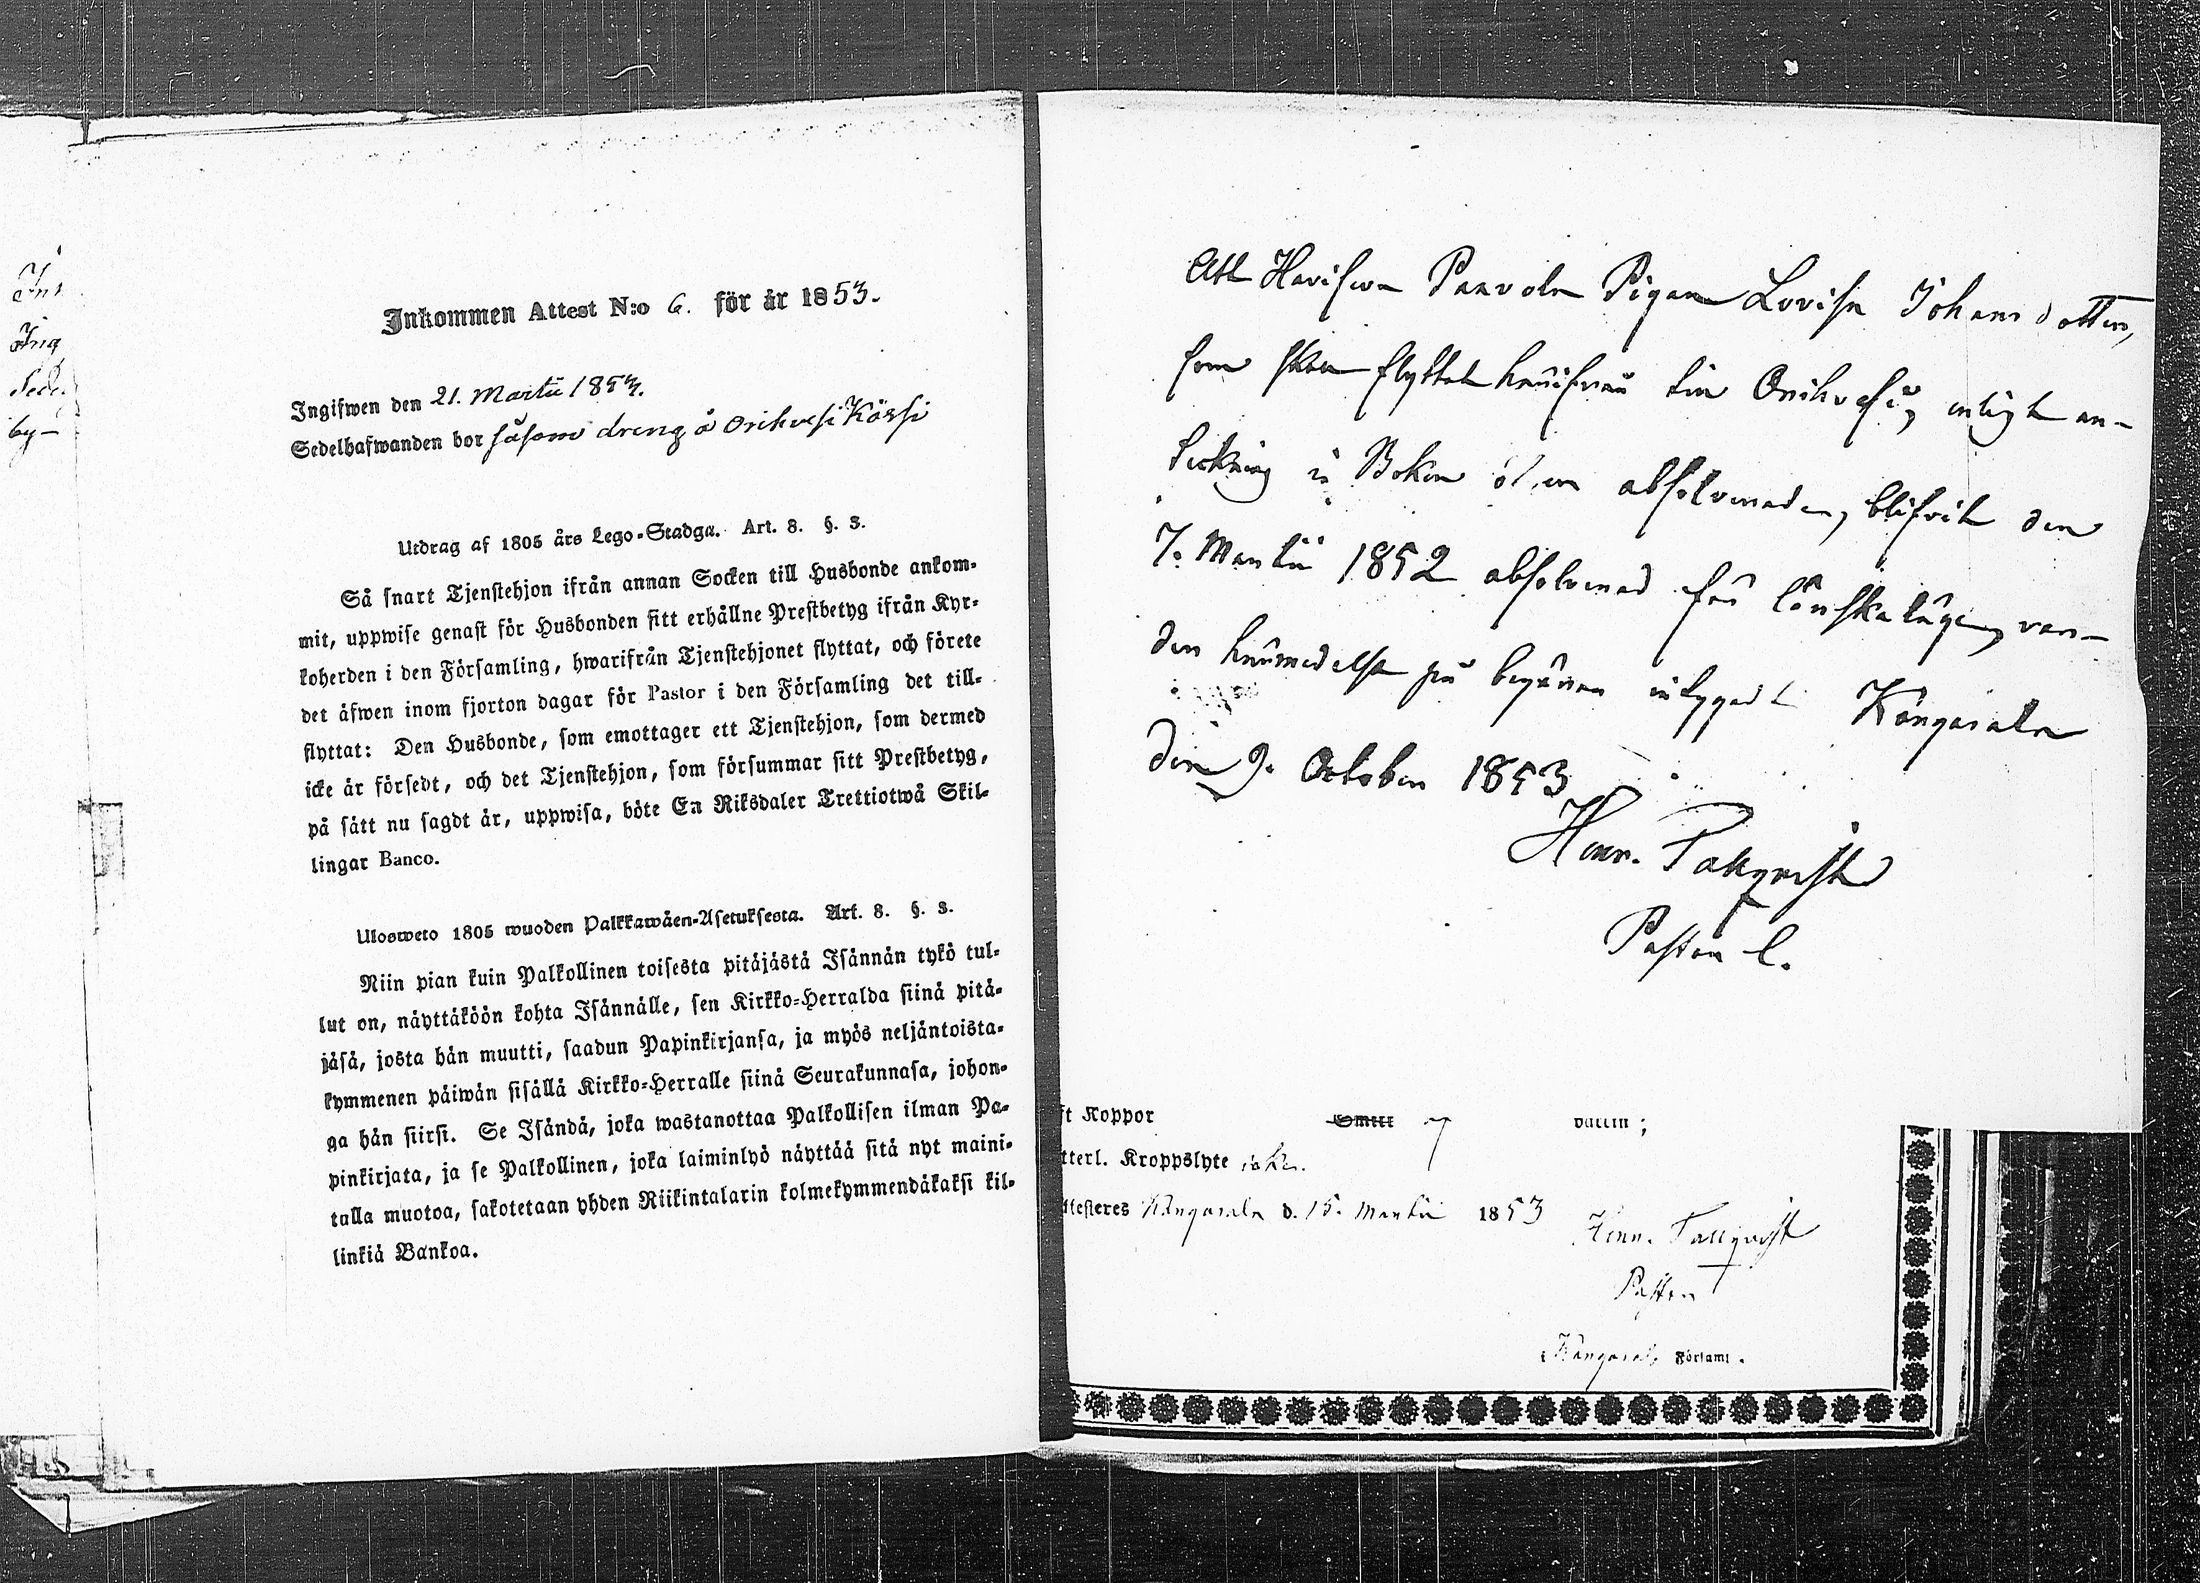 Inkommen Attest N:o 6. för år 1853.
Ingifwen den 21. Martii 1853.
Sedelhafwanden bor såsom dreng å Orihvesi Kössi
Utdrag af 1805 års Lego-Stadga. Art. 8. §. 3.
Så snart Tjenstehjon ifrån annan Socken till Husbonde ankom-
mit, uppwise genast för Husbonden sitt erhållne Prestbetyg ifrån Kyr-
koherden i den Församling, hwarifrån Tjenstehjonet flyttat, och förete
det äfwen inom fjorton dagar för Pastor i den Församling det till-
flyttat: Den Husbonde, som emottager ett Tjenstehjon, som dermed
icke är försedt, och det Tjenstehjon, som försummar sitt Prestbetyg,
på sätt nu sagdt är, uppwisa, böte En Riksdaler Trettiotwå Skil-
lingar Banco.
Ulosweto 1805 wuoden Palkkawäen-Asetuksesta. Art. 8. §. 3.
Niin pian kuin Palkollinen toisesta pitäjästä Isännän tykö tul-
lut on, näyttäköön kohta Isännälle, sen Kirkko-Herralda siinä pitä-
jäsä, josta hän muutti, saadun Papinkirjansa, ja myös neljäntoista-
kymmenen päiwän sisällä Kirkko-Herralle siinä Seurakunnasa, johon-
ga hän siirsi. Se Isändä, joka wastanottaa Palkollisen ilman Pa-
pinkirjata, ja se Palkollinen, joka laiminlyö näyttää sitä nyt maini-
tulla muotoa, sakotetaan yhden Riikintalarin kolmekymmendäkaksi kil-
linkiä Bankoa.
Ing
Sede
by
Att Haviswa Paavola Pigan Lovisa Johansdotter,
som flyttat härifrån till Orihvesi, enligt an-
teckning i Boken öfver absolverade, blifvit den
7. Martii 1852 absolverad för lönskaläge, var-
den härmedelst på begäran intygadt Kangasala
den 9. October 1853
Henr. Tallqvist
Pastor l.
ft Koppor
tterl. Kroppslyte icke.
ttesteres Kangasala d. 15. Martii 1853
Henr. Tallqvist
Pastor
i Kangasala Församl.